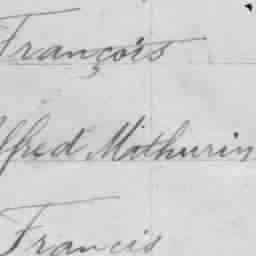 François
Alfred Mathurin
Francis